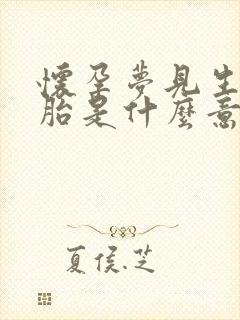 懷孕夢見生
胎是什麼意
夏侯.芝